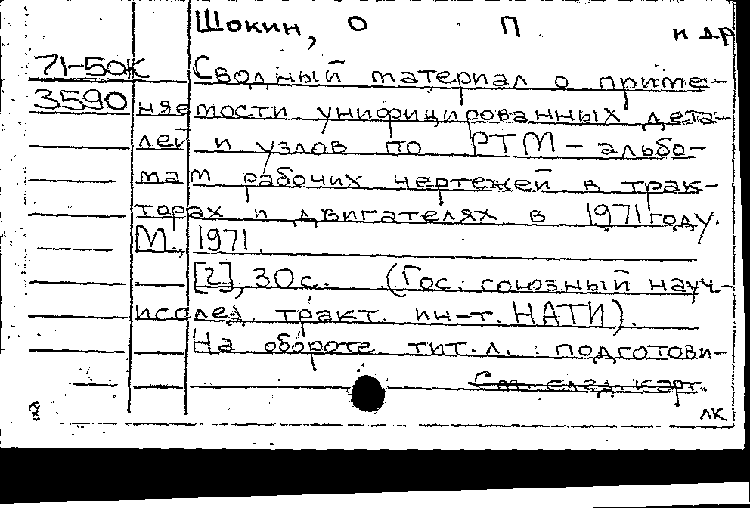 Шокин, О П и др
71-50К Сводный материал о приме-
3590 няемости унифицированных дета-
лей и узлов по РТМ - альбо-
мам рабочих чертежей в трак-
торах и двигателях в 1971 году.
М., 1971.
[2], 30 с. (Гос. союзный науч-
исслед. тракт. ин-т. НАТИ).
На обороте тит. л. : подготови-
См. след. карт.
ЛК